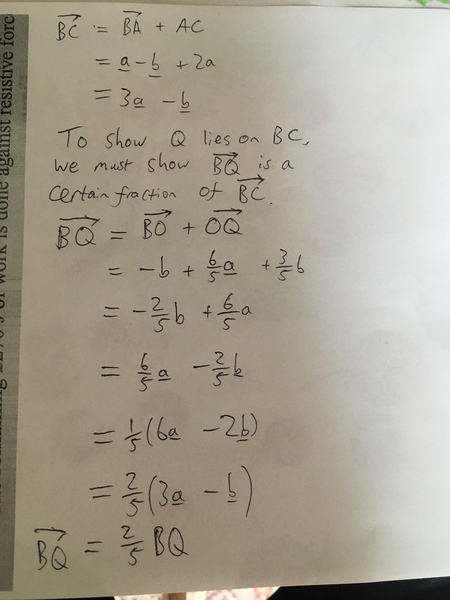 BC = BA + AC
= a - b + 2a
= 3a - b
To show Q lies on BC,
we must show BQ is a
certain fraction of BC.
BQ = BO + OQ
= -b + 6/5 a + 3/5 b
= -2/5 b + 6/5 a
= 6/5 a - 2/5 b
= 1/5 (6a - 2b)
= 2/5 (3a - b)
BQ = 2/5 BQ
work is done against resistive forc